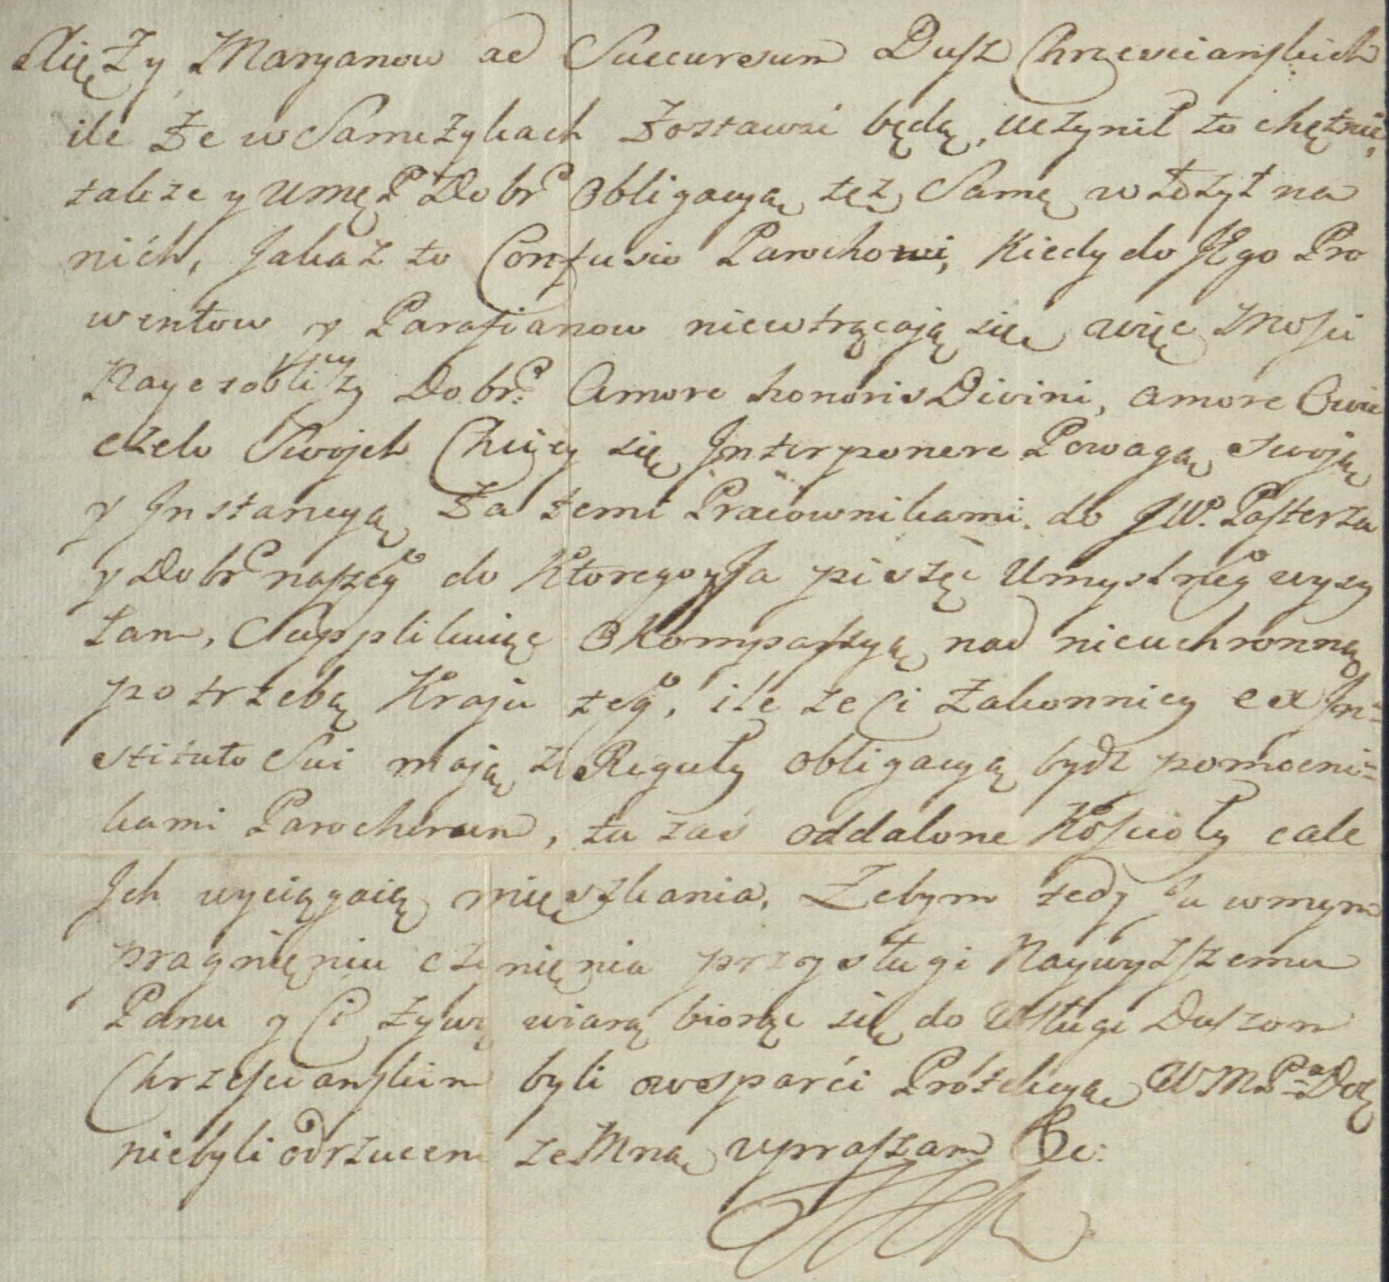 Xięży Maryanow ad Succursum Dusz Chrzescianskich
ile że w Samych zostawać będą, uczynił to chętnie,
także y Dobr. obligacyą tęż Samę włożył na
nich, Jakaż to Confusio Parochowi, kiedy do JEgo Pro
wentow y Parafianow niewtrącają się, więc Mości
Dobr. Amore honoris Divini, amore Owie
czek Swoich Chciey się Interponere Powagą swoją
y Instancyą Za temi Pracownikami. do JW. Pasterza
y Dobr naszeg do Ktorego y Ja piszę Umyslneg wysy
łam, Supplikuiąc o kompassyą nad nieuchronną
potrzebą Kraju teg, ile że Ci Zakonnicy ex In=
stituto Sui mają z Reguły obligacyą bydz pomocni=
kami Parochorum, tu zaś oddalone Kościoły cale
Ich wyciągaią mięszkania. Zebym tedy Ja w mym
pragnięniu czynięnia przysługi Naywyższemu
Panu y Ci żywą wiarą biorąc się do usługi Duszom
Chrzescianskim byli wsparći Protekcyą WMPa Do
niebyli odrzuceni ze Mną upraszam &c: